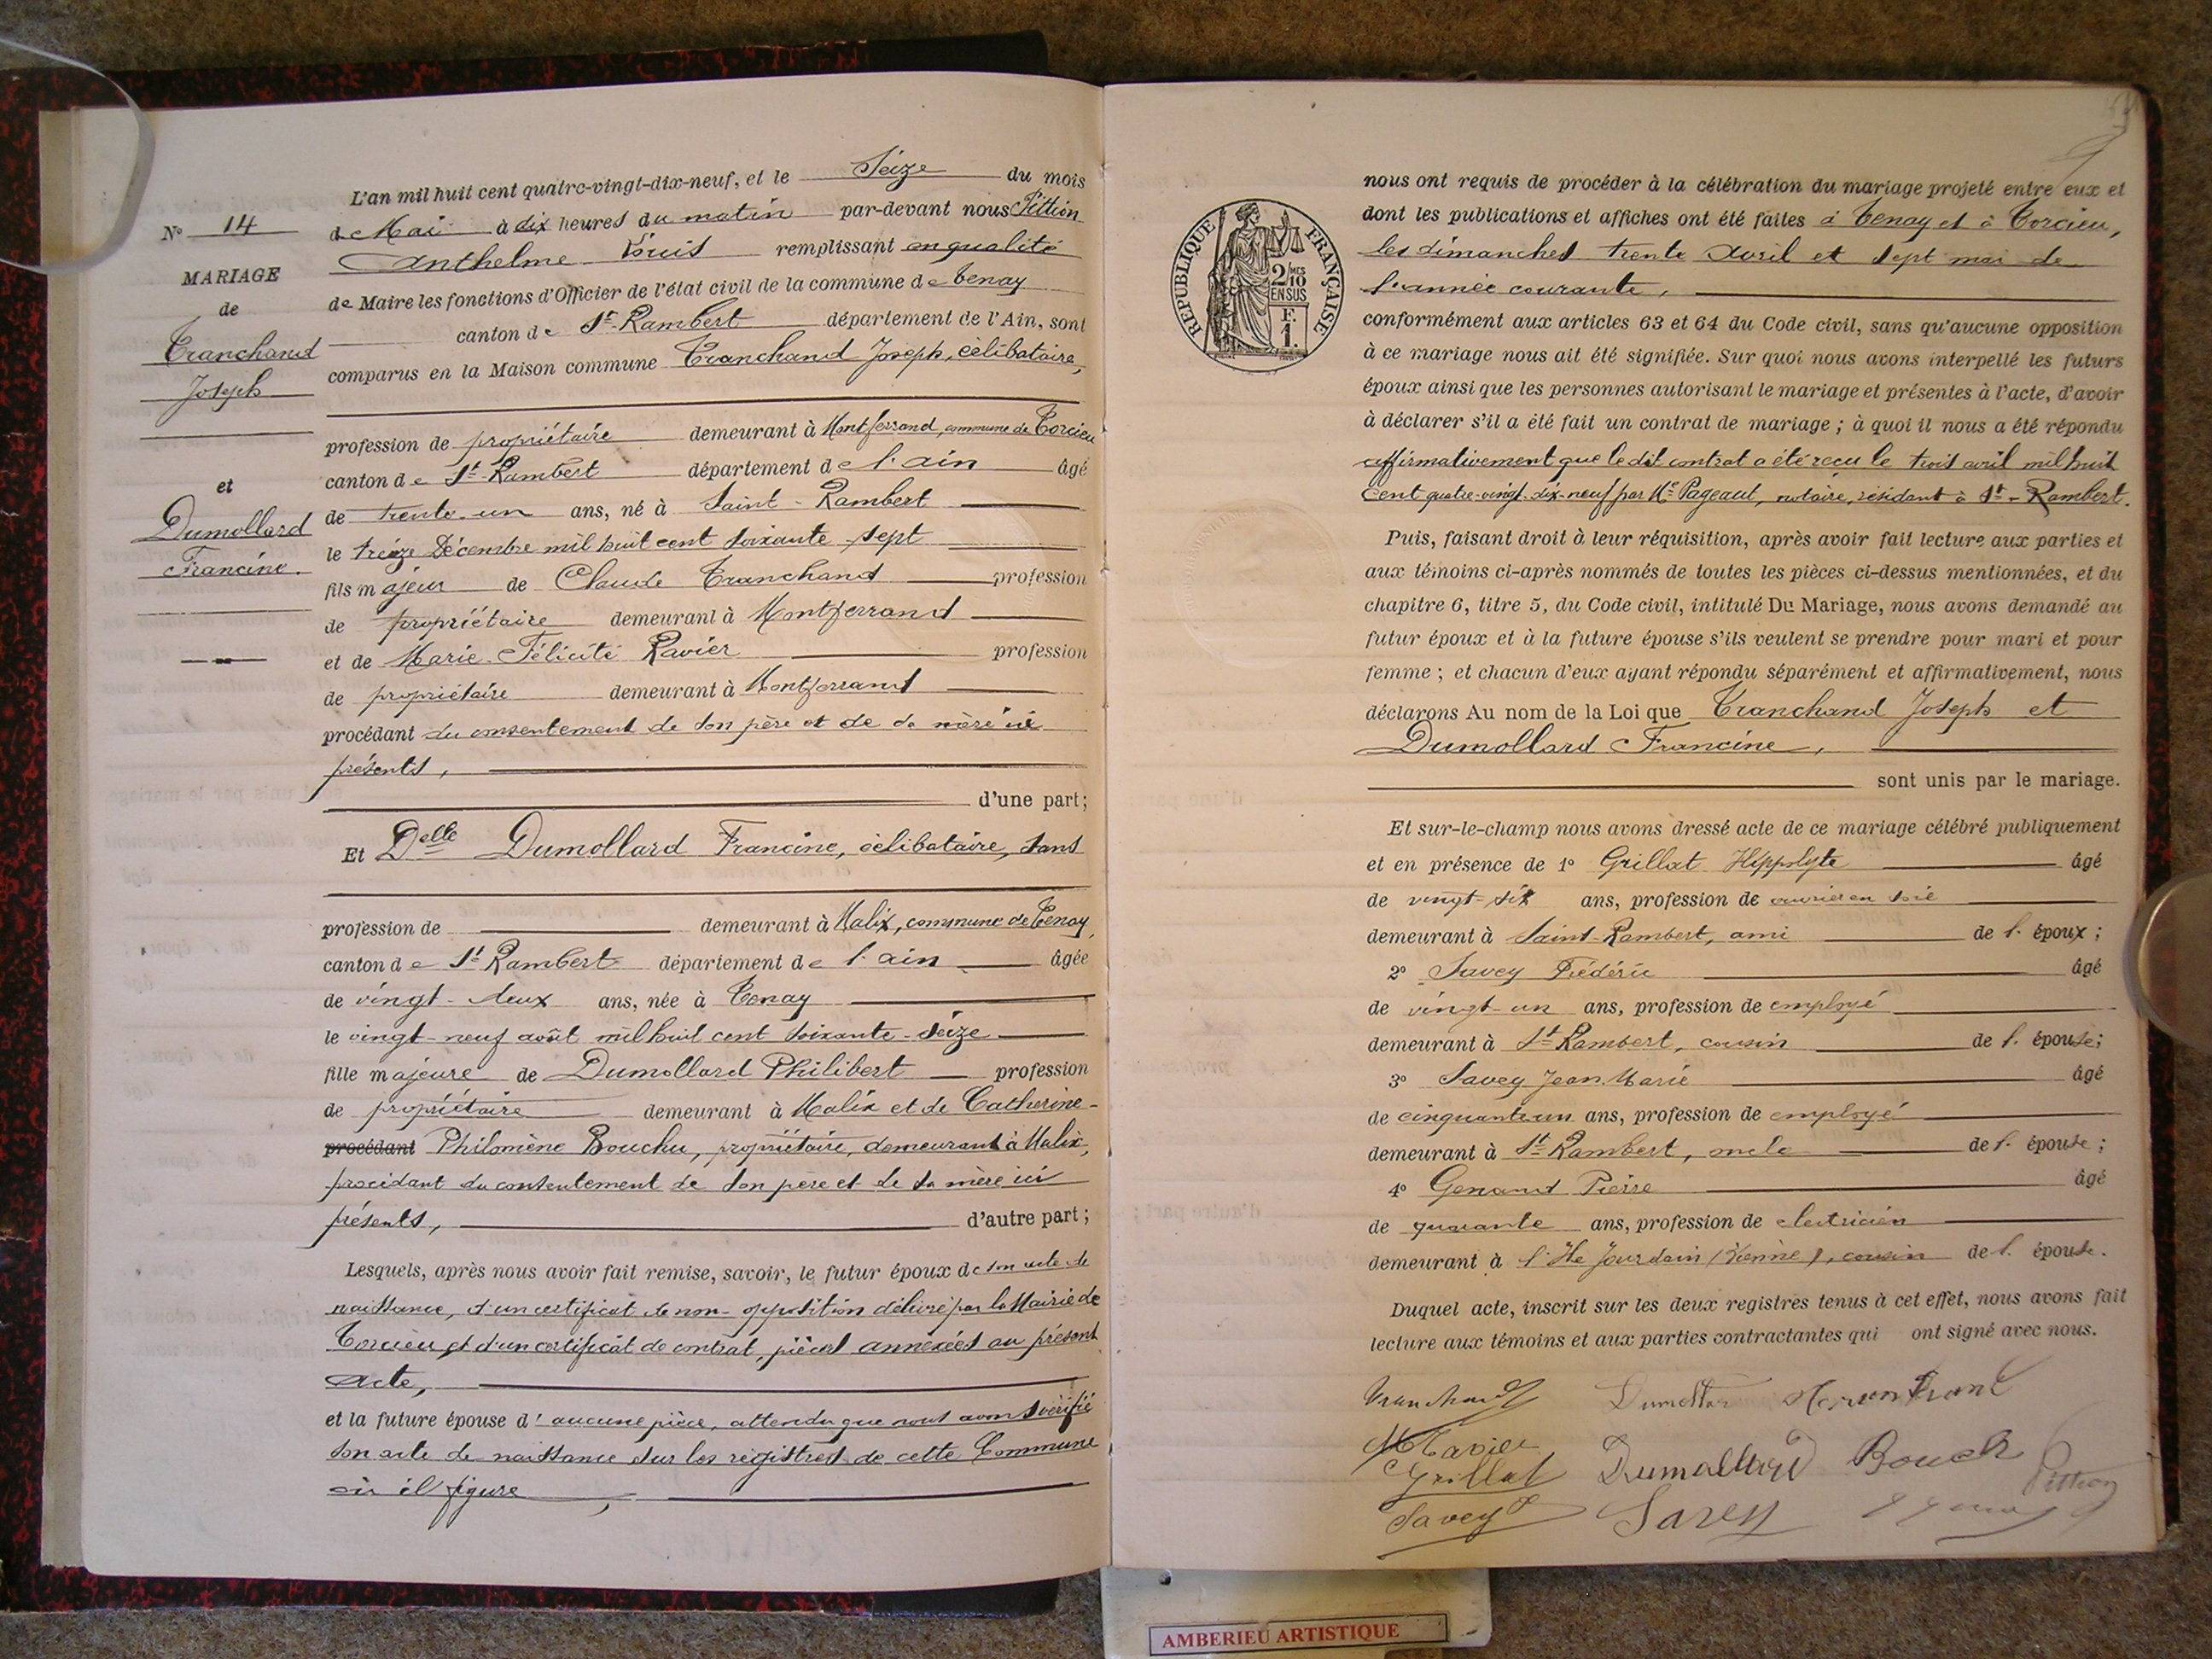 L'an mil huit cent quatre-vingt-dix-neuf, et le Seize du mois
de Mai à dix heures du matin par-devant nous Pittion
Anthelme Louis remplissant en qualité
de Maire les fonctions d'Officier de l'état civil de la commune de Tenay
canton de St-Rambert département de l'Ain, sont
comparus en la Maison commune Tranchand Joseph, célibataire,
N° 14
MARIAGE
de
Tranchand
Joseph
et
Dumollard
Francine.
profession de propriétaire demeurant à Montferrand, commune de Torcieu
canton de St-Rambert département de l'ain âgé
de trente-un ans, né à Saint-Rambert
le treize Décembre mil huit cent soixante-sept
fils majeur de Claude Tranchand profession
de propriétaire demeurant à Montferrand
et de Marie-Félicité Ravier profession
de propriétaire demeurant à Montferrand
procédant du consentement de son père et de sa mère ici
présents,
d'une part;
Et Delle Dumollard Francine, célibataire, sans
profession de demeurant à Malix, commune de Tenay,
canton de St-Rambert département de l'ain âgée
de vingt-deux ans, née à Tenay
le vingt-neuf août mil huit cent soixante-seize
fille majeure de Dumollard Philibert profession
de propriétaire demeurant à Malix et de Catherine-
procédant Philomène Bouchu, propriétaire, demeurant à Malix,
procédant du consentement de son père et de sa mère ici
présents, d'autre part;
Lesquels, après nous avoir fait remise, savoir, le futur époux de son acte de
naissance, d'un certificat de non-opposition délivré par la Mairie de
Torcieu et d'un certificat de contrat, pièces annexées au présent
acte,
et la future épouse d'aucune pièce, attendu que nous avons vérifié
son acte de naissance sur les registres de cette Commune
où il figure,
RÉPUBLIQUE FRANÇAISE
2/MES
10
EN SUS
F.
1.
nous ont requis de procéder à la célébration du mariage projeté entre eux et
dont les publications et affiches ont été faites à Tenay et à Torcieu,
les dimanches trente avril et sept mai de
l'année courante,
conformément aux articles 63 et 64 du Code civil, sans qu'aucune opposition
à ce mariage nous ait été signifiée. Sur quoi nous avons interpellé les futurs
époux ainsi que les personnes autorisant le mariage et présentes à l'acte, d'avoir
à déclarer s'il a été fait un contrat de mariage; à quoi il nous a été répondu
affirmativement que le dit contrat a été reçu le trois avril mil huit
cent quatre-vingt-dix-neuf par Me Pageaut, notaire, résidant à St-Rambert.
Puis, faisant droit à leur réquisition, après avoir fait lecture aux parties et
aux témoins ci-après nommés de toutes les pièces ci-dessus mentionnées, et du
chapitre 6, titre 5, du Code civil, intitulé Du Mariage, nous avons demandé au
futur époux et à la future épouse s'ils veulent se prendre pour mari et pour
femme; et chacun d'eux ayant répondu séparément et affirmativement, nous
déclarons Au nom de la Loi que Tranchand Joseph et
Dumollard Francine,
sont unis par le mariage.
Et sur-le-champ nous avons dressé acte de ce mariage célébré publiquement
et en présence de 1° Grillat Hippolyte âgé
de vingt-six ans, profession de ouvrier en soie
demeurant à Saint-Rambert, ami de l'époux;
2° Savey Frédéric âgé
de vingt-un ans, profession de employé
demeurant à St-Rambert, cousin de l'épouse;
3° Savey Jean-Marie âgé
de cinquante-un ans, profession de employé
demeurant à St-Rambert, oncle de l'épouse;
4° Genand Pierre âgé
de quarante ans, profession de électricien
demeurant à l'Ile Jourdain (Vienne), cousin de l'épouse.
Duquel acte, inscrit sur les deux registres tenus à cet effet, nous avons fait
lecture aux témoins et aux parties contractantes qui ont signé avec nous.
Tranchand
Ravier
Grillat Dumollard Bouch Pittion
Savey Savey
AMBERIEU ARTISTIQUE